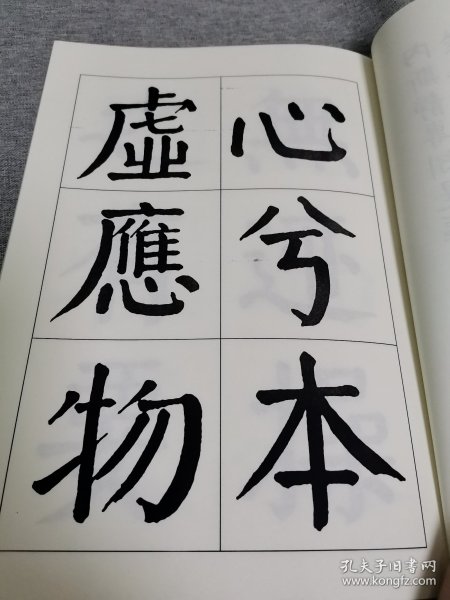 心兮本
虛應物
孔夫子旧书网
www.kongfz.com